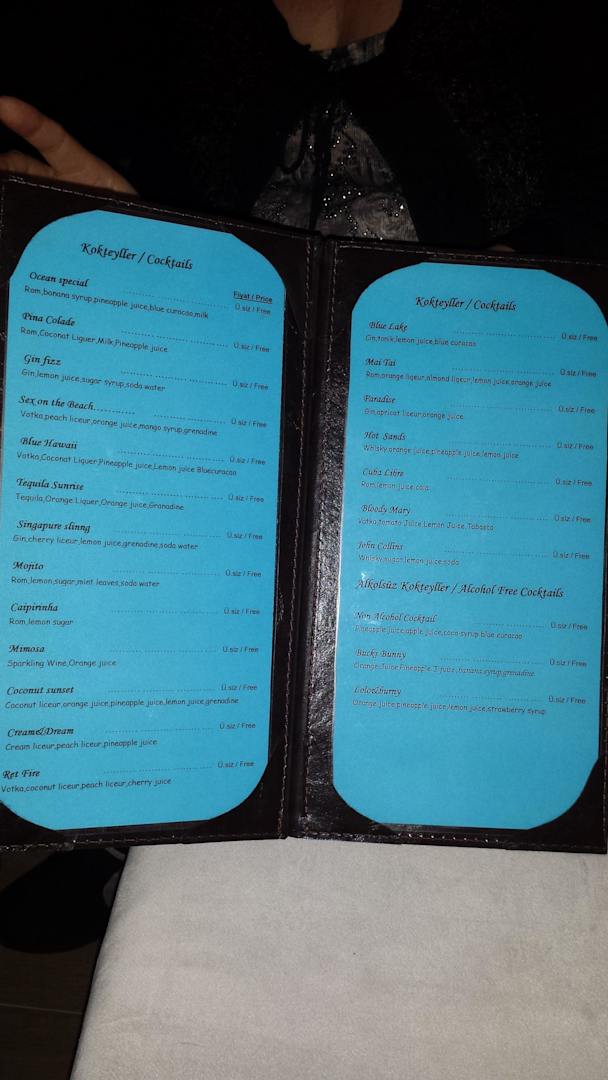 Kokteyller / Cocktails
Fiyat / Price
Ocean special ........................ Ü.siz / Free
Rom,banana syrup,pineapple juice,blue curacao,milk
Pina Colade ........................ Ü.siz / Free
Rom,Coconut Liguer,Milk,Pineapple juice
Gin fizz ........................ Ü.siz / Free
Gin,lemon juice,sugar syrup,soda water
Sex on the Beach............ ........................ Ü.siz / Free
Votka,peach liceur,orange juice,mango syrup,grenadine
Blue Hawaii ........................ Ü.siz / Free
Votka,Coconut Liguer,Pineapple juice,Lemon juice Bluecuracao
Tequila Sunrise ........................ Ü.siz / Free
Tequila,Orange Liquer,Orange juice,Granadine
Singapure slinng ........................ Ü.siz / Free
Gin,cherry liceur,lemon juice,grenadine,soda water
Mojito ........................ Ü.siz / Free
Rom,lemon,sugar,mint leaves,soda water
Caipirinha ........................ Ü.siz / Free
Rom,lemon sugar
Mimosa ........................ Ü.siz / Free
Sparkling Wine,Orange juice
Coconut sunset ........................ Ü.siz / Free
Coconut liceur,orange juice,pineapple juice,lemon juice,grenadine
Creame&Dream ........................ Ü.siz / Free
Cream liceur,peach liceur,pineapple juice
Ret Fire ........................ Ü.siz / Free
Votka,coconut liceur,peach liceur,cherry juice
Kokteyller / Cocktails
Blue Lake ........................ Ü.siz / Free
Gin,tonik,lemon juice,blue curacao
Mai Tai ........................ Ü.siz / Free
Rom,orange ligeur,almond liqeur,lemon juice,orange juice
Paradise ........................ Ü.siz / Free
Gin,apricot liceur,orange juice
Hot Sands ........................ Ü.siz / Free
Whisky,orange juice,pineapple juice,lemon juice
Cuba Libre ........................ Ü.siz / Free
Rom,lemon juice,cola
Bloody Mary ........................ Ü.siz / Free
Votka,tomato Juice,Lemon Juice,Tabasco
John Collins ........................ Ü.siz / Free
Whisky,sugar,lemon juice,soda
Alkolsüz Kokteyller / Alcohol Free Cocktails
Non Alcohol Cocktail ........................ Ü.siz / Free
Pineapple juice,apple juice,coco syrup,blue curacao
Bucks Bunny ........................ Ü.siz / Free
Orange Juice,Pineapple Juice,banana syrup,grenadine
Lolo&burny ........................ Ü.siz / Free
Orange juice,pineapple juice,lemon juice,strawberry syrup